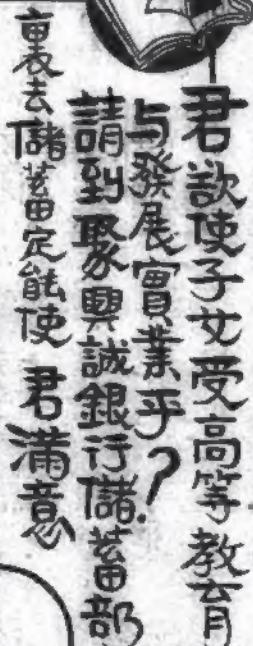 君欲使子女受高等教育
与發展實業乎？
請到聚興誠銀行儲蓄部
裏去儲蓄定能使 君滿意